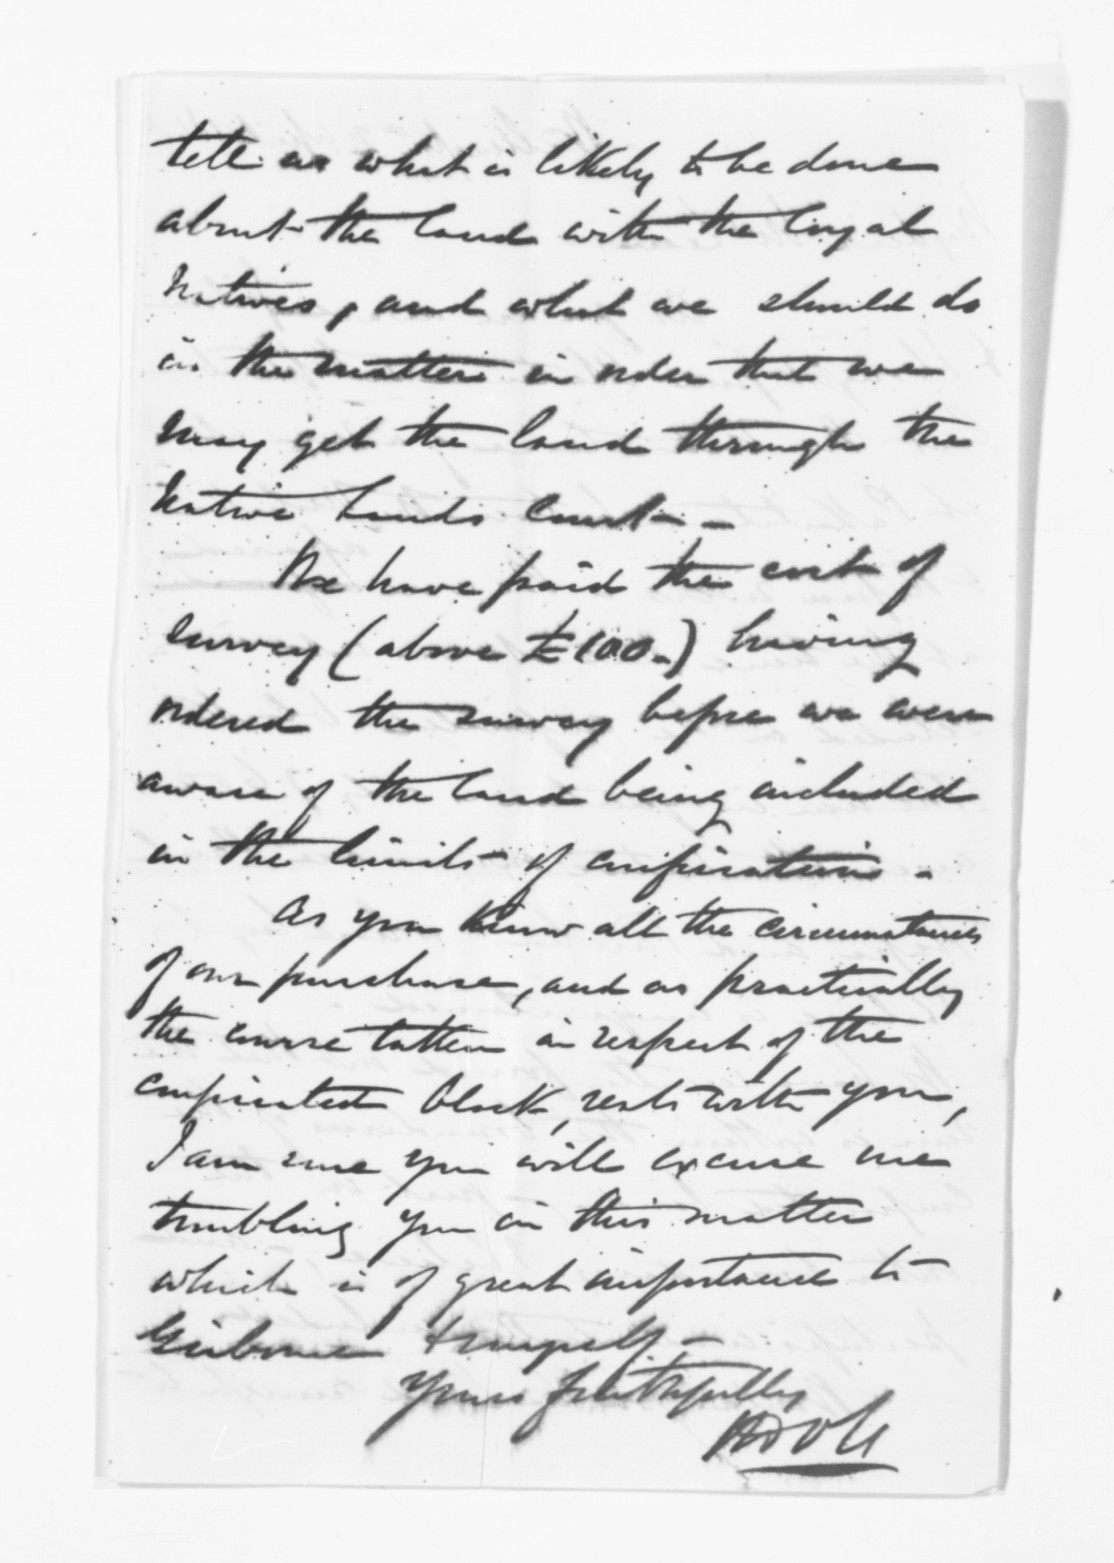 tell us what is likely to be done
about the land with the loyal
Natives, and what we should do
in the matter in order that we
may get the land through the
Native Lands Court. -
We have paid the cost of
survey (above £100.) having
ordered the survey before we were
aware of the land being included
in the limits of confiscation.
As you know all the circumstances
of our purchase, and as practically
the course taken in respect of the
confiscated block, rests with you,
I am sure you will excuse me
troubling you in this matter
which is of great importance to
Gisborne & myself -
Yours faithfully